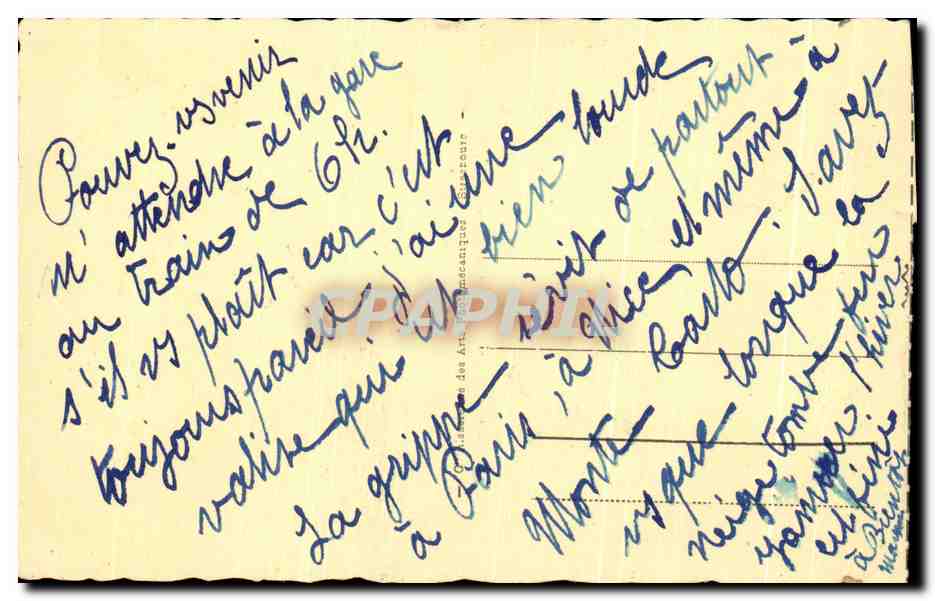 Pouvez-vs venir
m'attendre à la gare
au train de 6h.
s'il vs plaît car c'est
toujours pareil j'ai une lourde
valise qui est bien
La grippe sévit de partout
à Paris, à Nice et même à
Monte Carlo. Savez
vs que lorsque la
neige tombe fin
janvier l'hiver
est fini
à Bientôt
CPAPHIL
des Arts Photomécaniques